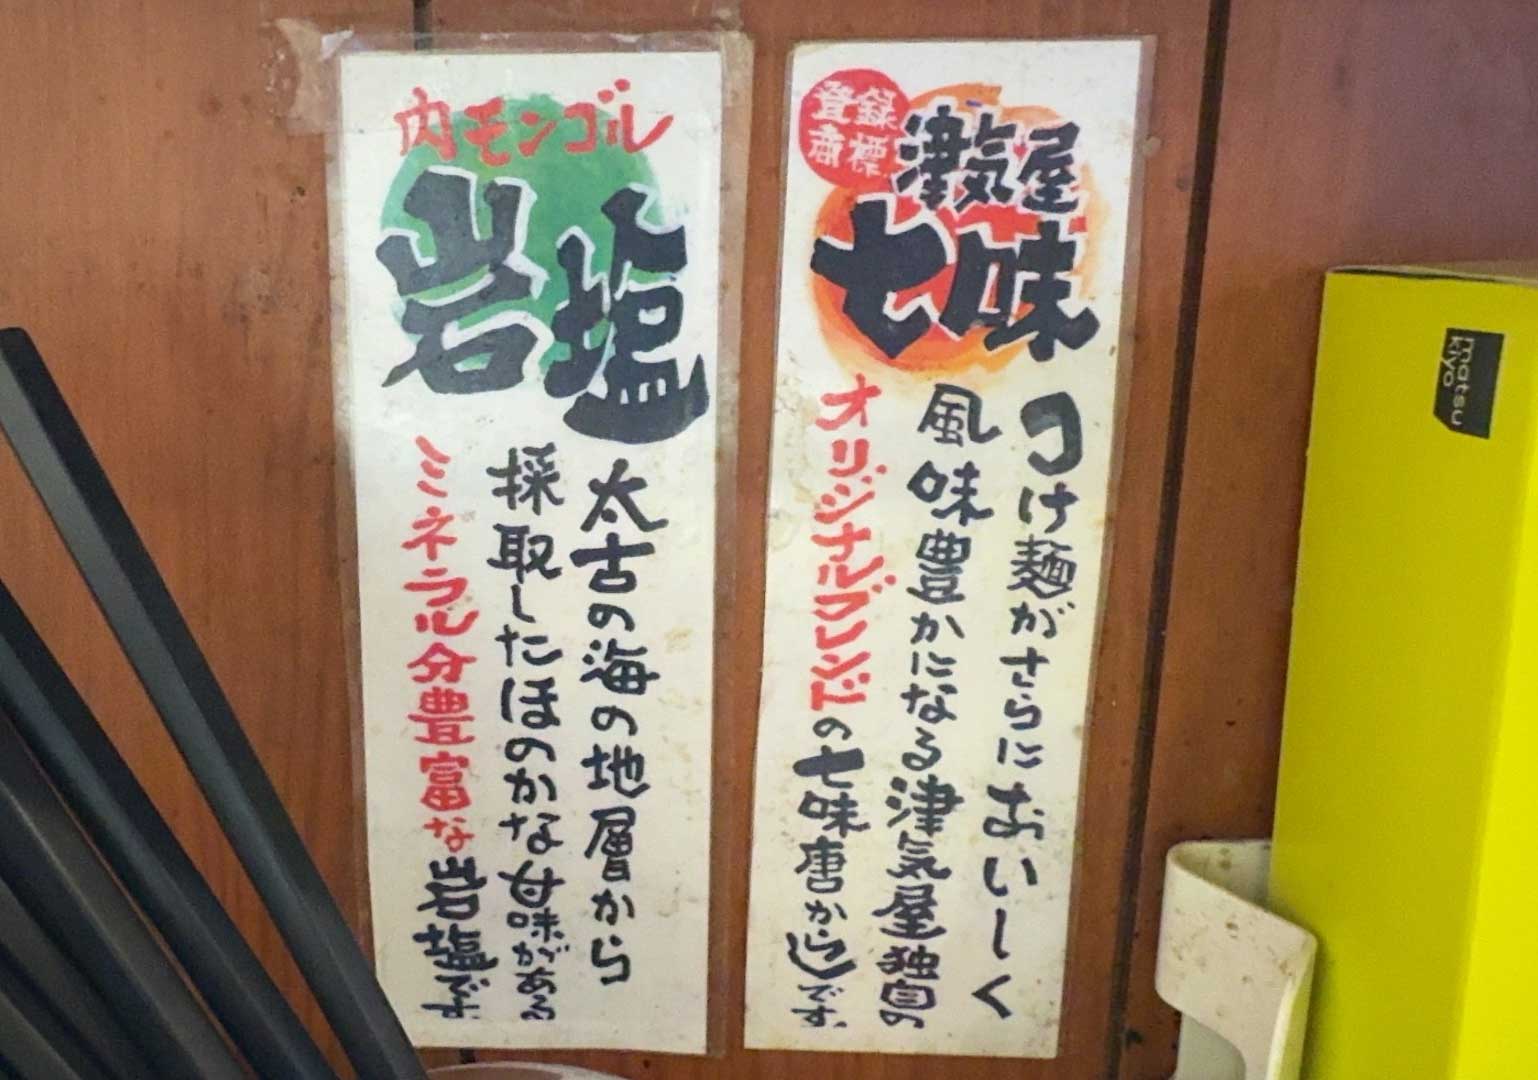 内モンゴル
岩塩
太古の海の地層から
採取したほのかな甘味がある
ミネラル分豊富な岩塩です。
登録
商標
津気屋
七味
つけ麺がさらにおいしーく
風味豊かになる津気屋独自の
オリジナルブレンドの七味唐からしです。
matsu
kiyo